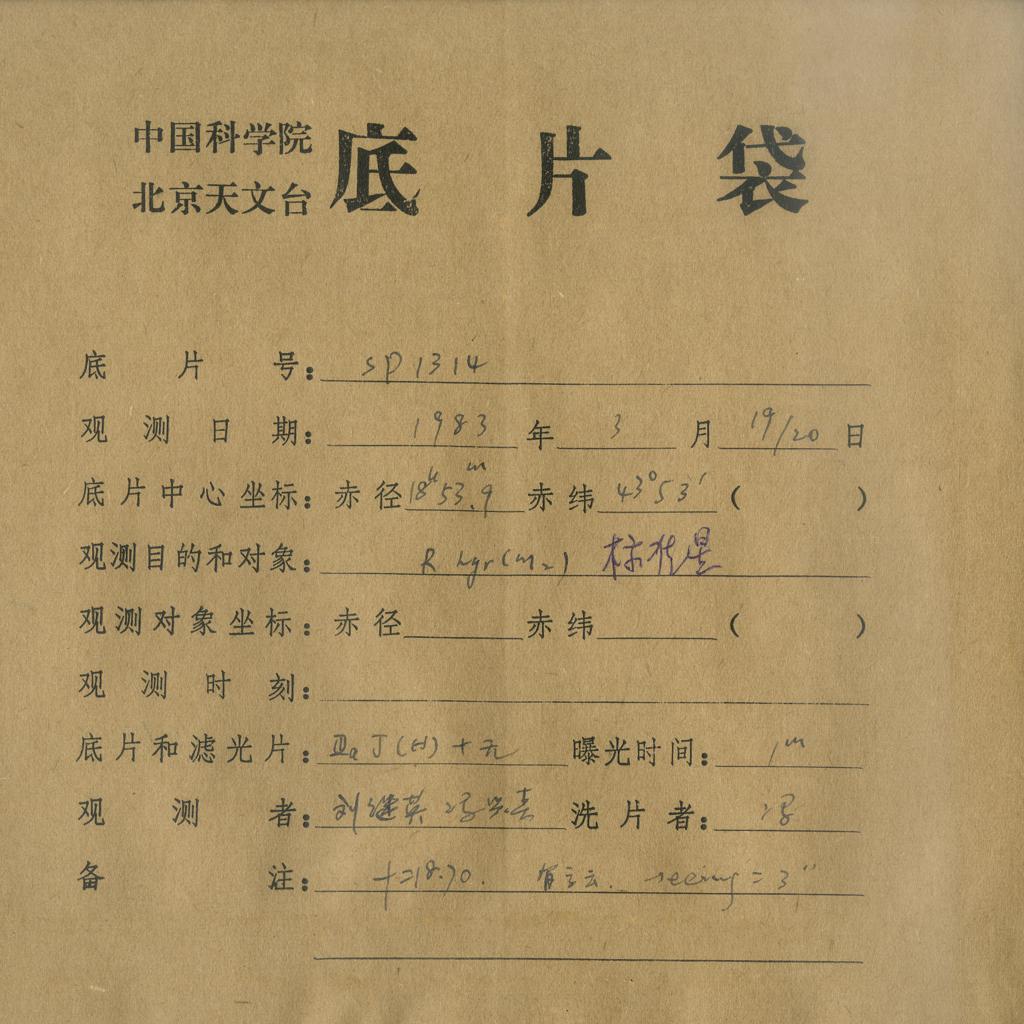 中国科学院
北京天文台
底片袋
底片号：SP1314
观测日期：1983年3月19/20日
底片中心坐标：赤径18ʰ53ᵐ.9 赤纬43°53′（ ）
观测目的和对象：R Lyr (M₂) 标准星
观测对象坐标：赤径 赤纬 （ ）
观测时刻：
底片和滤光片：ⅢaJ(H)+无 曝光时间：1ᵐ
观测者：刘继英 冯兴春 洗片者：冯
备注：t=18.70. 有云. seeing=3″